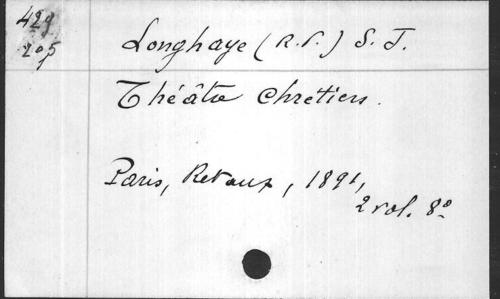 429
205
Longhaye (R.P.) S. J.
Théâtre Chretien.
Paris, Retaux, 1891,
2 vol. 8º